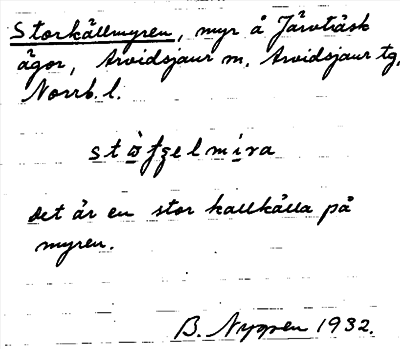 Storkällmyren, myr å Järvträsk
ägor, Arvidsjaur m. Arvidsjaur tg,
Norrb. l.
det är en stor kallkälla på
myren.
B. Nygren 1932.